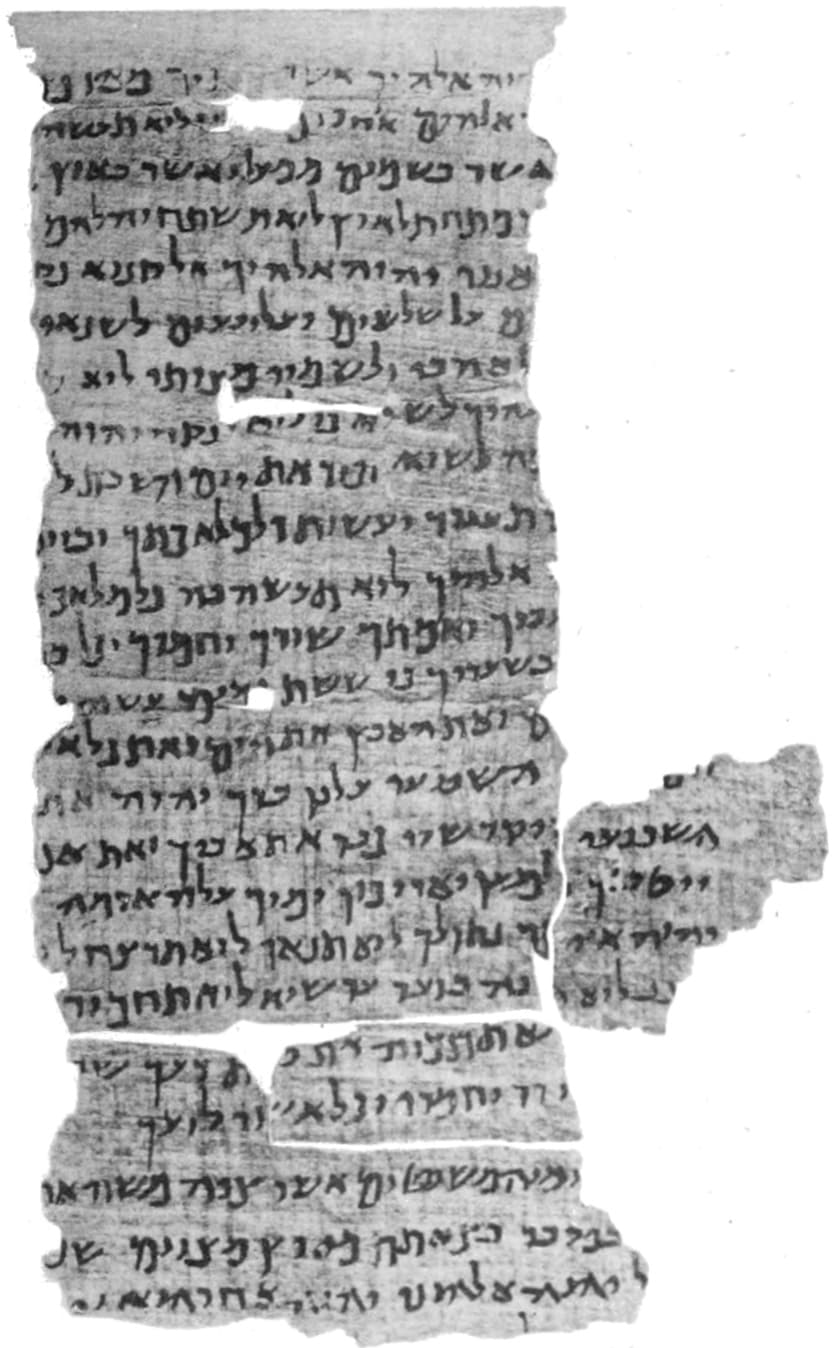 יהוה אלהיך אשר מארץ
אלהים אחרים לוא תעשה
אשר בשמים ממעל ואשר בארץ
מתחת לארץ לוא תשתחוה להם
אנכי יהוה אלהיך אל קנוא
ם על שלשים ועל רבעים לשנאי
לאהבי ולשמרי מצותי לוא
להיך לשוא כי לוא ינקה יהוה
ה לשוא זכור את יום השבת ל
תעבוד ועשית כל מלאכתך וביום
אלהיך לוא תעשה בה כל מלאכה
עבדך ואמתך שורך וחמרך וכל ב
בשעריך כי ששת ימים עשה
ם ואת הארץ את הים ואת כל א
השביעי על כן ברך יהוה את
השביעי ויקדשיו כבד את אביך ואת אמ
ייטב לך ולמען יאריכון ימיך על האדמה
יהוה אלהיך נתן לך לוא תנאף לוא תרצח לו
לוא תענה ברעך עד שוא לוא תחמוד
את אשת רעך שד
ורו וחמרו וכל אשר לרעך
ים והמשפטים אשר צוה משה את
במדבר בצאתם מארץ מצרים שמ
ל יהוה אלהינו יהוה אחד הוא